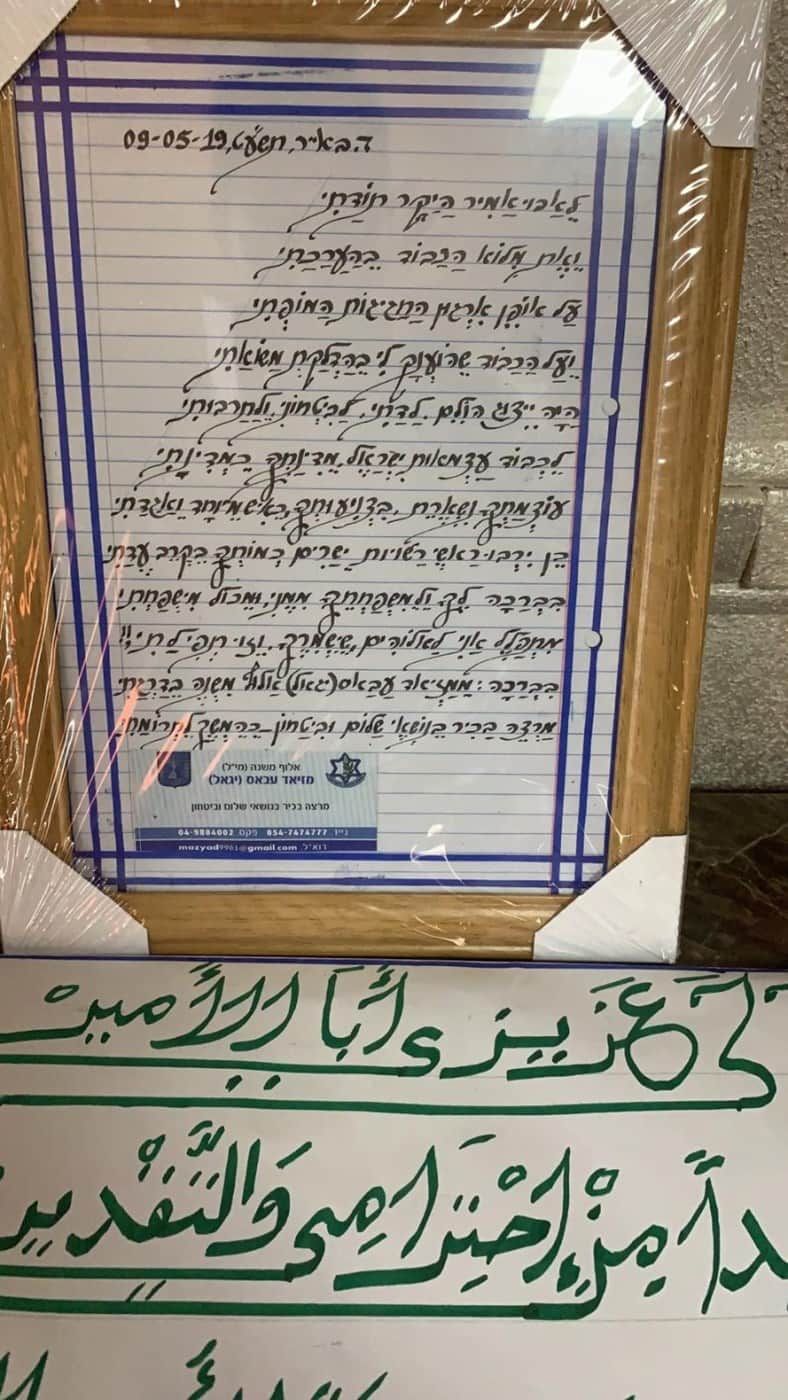 ד.באייר, תשע"ט, 09-05-19
לַאֲבּוּ-אַמִיר הַיָקָר תּוֹדָתִי
וְאֶת מְלוֹא הַכָּבוֹד בְּהַעֲרָכָתִי
עַל אוֹפֶן אִרְגוּן הַחֲגִיגוֹת הַמּוֹפְתִי
וְעַל הַכָּבוֹד שֶׁהוֹעֲנַק לִי בְּהַדְלָקַת מַשׂוּאָתִי
הָיָה יִיצוּג הוֹלֵם לַדָתִי, לַבִּטְחוֹנִי, וְלַתַּרְבּוּתִי
לִכְבוֹד עַצְמָאוּת יִשְׂרָאֵל, מְדִינָתְךָ כִּמְדִינָתִי
עוֹצְמָתְךָ בִּצְנִיעוּתְךָ, כְּאִישׁ מְיוּחָד וְאַגָדָתִי
כֵּן יִרְבּוּ רָאשֵׁי רָשׁוּיוֹת יְשָׁרִים כְּמוֹתְךָ בְּקֶרֶב עֲדָתִי
בִּבְרָכָה לְךָ וּלְמִשְׁפַּחְתְּךָ מִמֶנִי, וּמִכּוֹל מִשְׁפַּחְתִּי
מִתְפַּלֵל אֲנִי לֵאלוֹהִים, שֶׁיִשְׁמָרְךָ, וְזוֹ תְּפִילָתִי!!
בִּבְרָכָה: מִמַּזְיאַד עַבַּאס (יגאל) אַלוּף מִשְׁנֶה בְּדַרְגָתִי
מַרְצֶה בָּכִיר בְּנוֹשְׂאֵי שָׁלוֹם וּבִיטָחוֹן-בְּהֶמְשֵׁךְ לִתְרוּמָתִי
אלוף משנה (מי"ל)
מזיאד עבאס (יגאל)
מרצה בכיר בנושאי שלום וביטחון
נייד 054-7474777 פקס 04-9884002
דוא"ל. mazyad9961@gmail.com
عَزِيزِي أَبَا الأَمِير
مِنْ اِحْتِرَامِي وَالتَّقْدِير